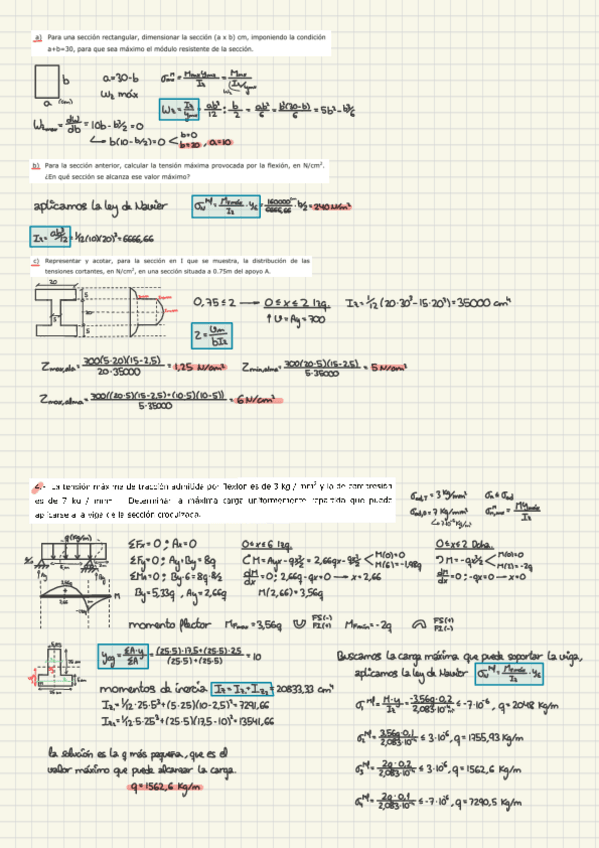 a) Para una sección rectangular, dimensionar la sección (a x b) cm, imponiendo la condición
a+b=30, para que sea máximo el módulo resistente de la sección.
b
a (cm)
a=30-b
W₂ máx
W₂ = I₂/ymax = ab³/12 : b/2 = ab²/6 = b²(30-b)/6 = 5b²-b³/6
W₂max = dW/db = 10b - b²/2 = 0
b(10-b/2)=0 < b=0
b=20, a=10
b) Para la sección anterior, calcular la tensión máxima provocada por la flexión, en N/cm².
¿En qué sección se alcanza ese valor máximo?
aplicamos la ley de Navier
= 160000/6666,66 · b/2 = 240 N/cm²
I₂ = ab³/12 = 1/12 (10)(20)³ = 6666,66
c) Representar y acotar, para la sección en I que se muestra, la distribución de las
tensiones cortantes, en N/cm², en una sección situada a 0.75m del apoyo A.
20
5
20
5
5
0,75 ≤ 2 → 0 ≤ x ≤ 2 Izq.
↑ U = Ay = 300
I₂ = 1/12 (20·30³ - 15·20³) = 35000 cm⁴
Zmax,ala = 300(5·20)(15-2,5)/20·35000 = 1,25 N/cm²
Zmin,alma = 300(20·5)(15-2,5)/5·35000 = 5 N/cm²
Zmax,alma = 300((20·5)(15-2,5)+(10·5)(10-5))/5·35000 = 6 N/cm²
4.- La tensión máxima de tracción admitida por flexion es de 3 kg / mm² y la de compresión
es de 7 kg / mm². Determinar la máxima carga uniformemente repartida que puede
aplicarse a la viga de la sección
σad,T = 3 kg/mm²
σad,c = 7 kg/mm²
q (kg/m)
ΣFx = 0 ; Ax = 0
ΣFy = 0 ; Ay + By = 8q
ΣMA = 0 ; By·6 = 8q·8/2
By = 5,33q , Ay = 2,66q
0 ≤ x ≤ 6 Izq.
M = Ayx - qx²/2 = 2,66qx - qx²/2 < M(0)=0
dM/dx = 0 ; 2,66q - qx = 0 → x = 2,66
M(2,66) = 3,56q
0 ≤ x ≤ 2 Dcha.
M = -qx²/2 < M(0)=0
M(2)=-2q
dM/dx = 0 ; -qx = 0 → x = 0
M
momento flector MFmax = 3,56q
FS(-)
FI(+)
MFmin = -2q
FS(+)
FI(-)
ycg = ΣA·y/ΣA = (25·5)·17,5+(25·5)·2,5/(25·5)+(25·5) = 10
momentos de inercia I₂ = I₂₁ + I₂₂ = 20833,33 cm⁴
I₂₁ = 1/12·25·5³ + (5·25)(10-2,5)² = 7291,66
I₂₂ = 1/12·5·25³ + (25·5)(17,5-10)² = 13541,66
Buscamos la carga máxima que puede soportar la viga,
aplicamos la ley de Navier
q = 2048 Kg/m
≤ 3·10⁶, q = 1755,93 Kg/m
≤ 3·10⁶, q = 1562,6 Kg/m
≤ -7·10⁶, q = 7290,5 Kg/m
la solución es la q más pequeña, que es el
valor máximo que puede alcanzar la carga.
q = 1562,6 Kg/m